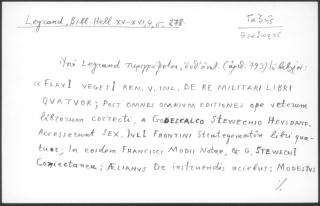 Legrand, Bibl. Hell. XV-XVI, 4, σ. 278.
Γαζῆς
Θεόδωρος
Ὑπὸ Legrand περιγράφεται, (ἀρ. 793) τὸ βιβλίον:
« FLAVI VEGETI REN. V. INL. DE RE MILITARI LIBRI
QVATVOR; POST OMNES OMNIVM EDITIONES ope veterum
librorum correcti, a GODESCALCO STEWECHIO HEVSDANO.
Accesserunt SEX. IVLI FRONTINI Strategematôn libri qua-
tuor; In eosdem FRANCISCI MODII Notae, & G. STEWECHI
Coniectanea; ÆLIANVS De instruendis aciebus; MODESTVS
·/.